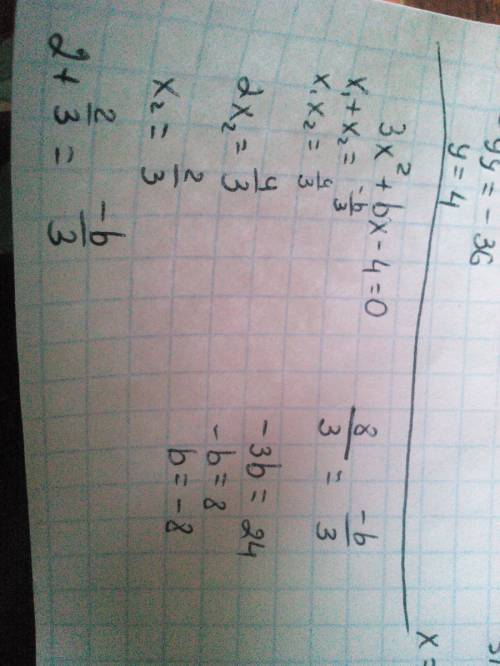 9y = -36
y = 4
3x² + bx - 4 = 0
x₁ + x₂ = -b/3
x₁x₂ = 4/3
2x₂ = 4/3
x₂ = 2/3
2 + 2/3 = -b/3
8/3 = -b/3
-3b = 24
-b = 8
b = -8
x